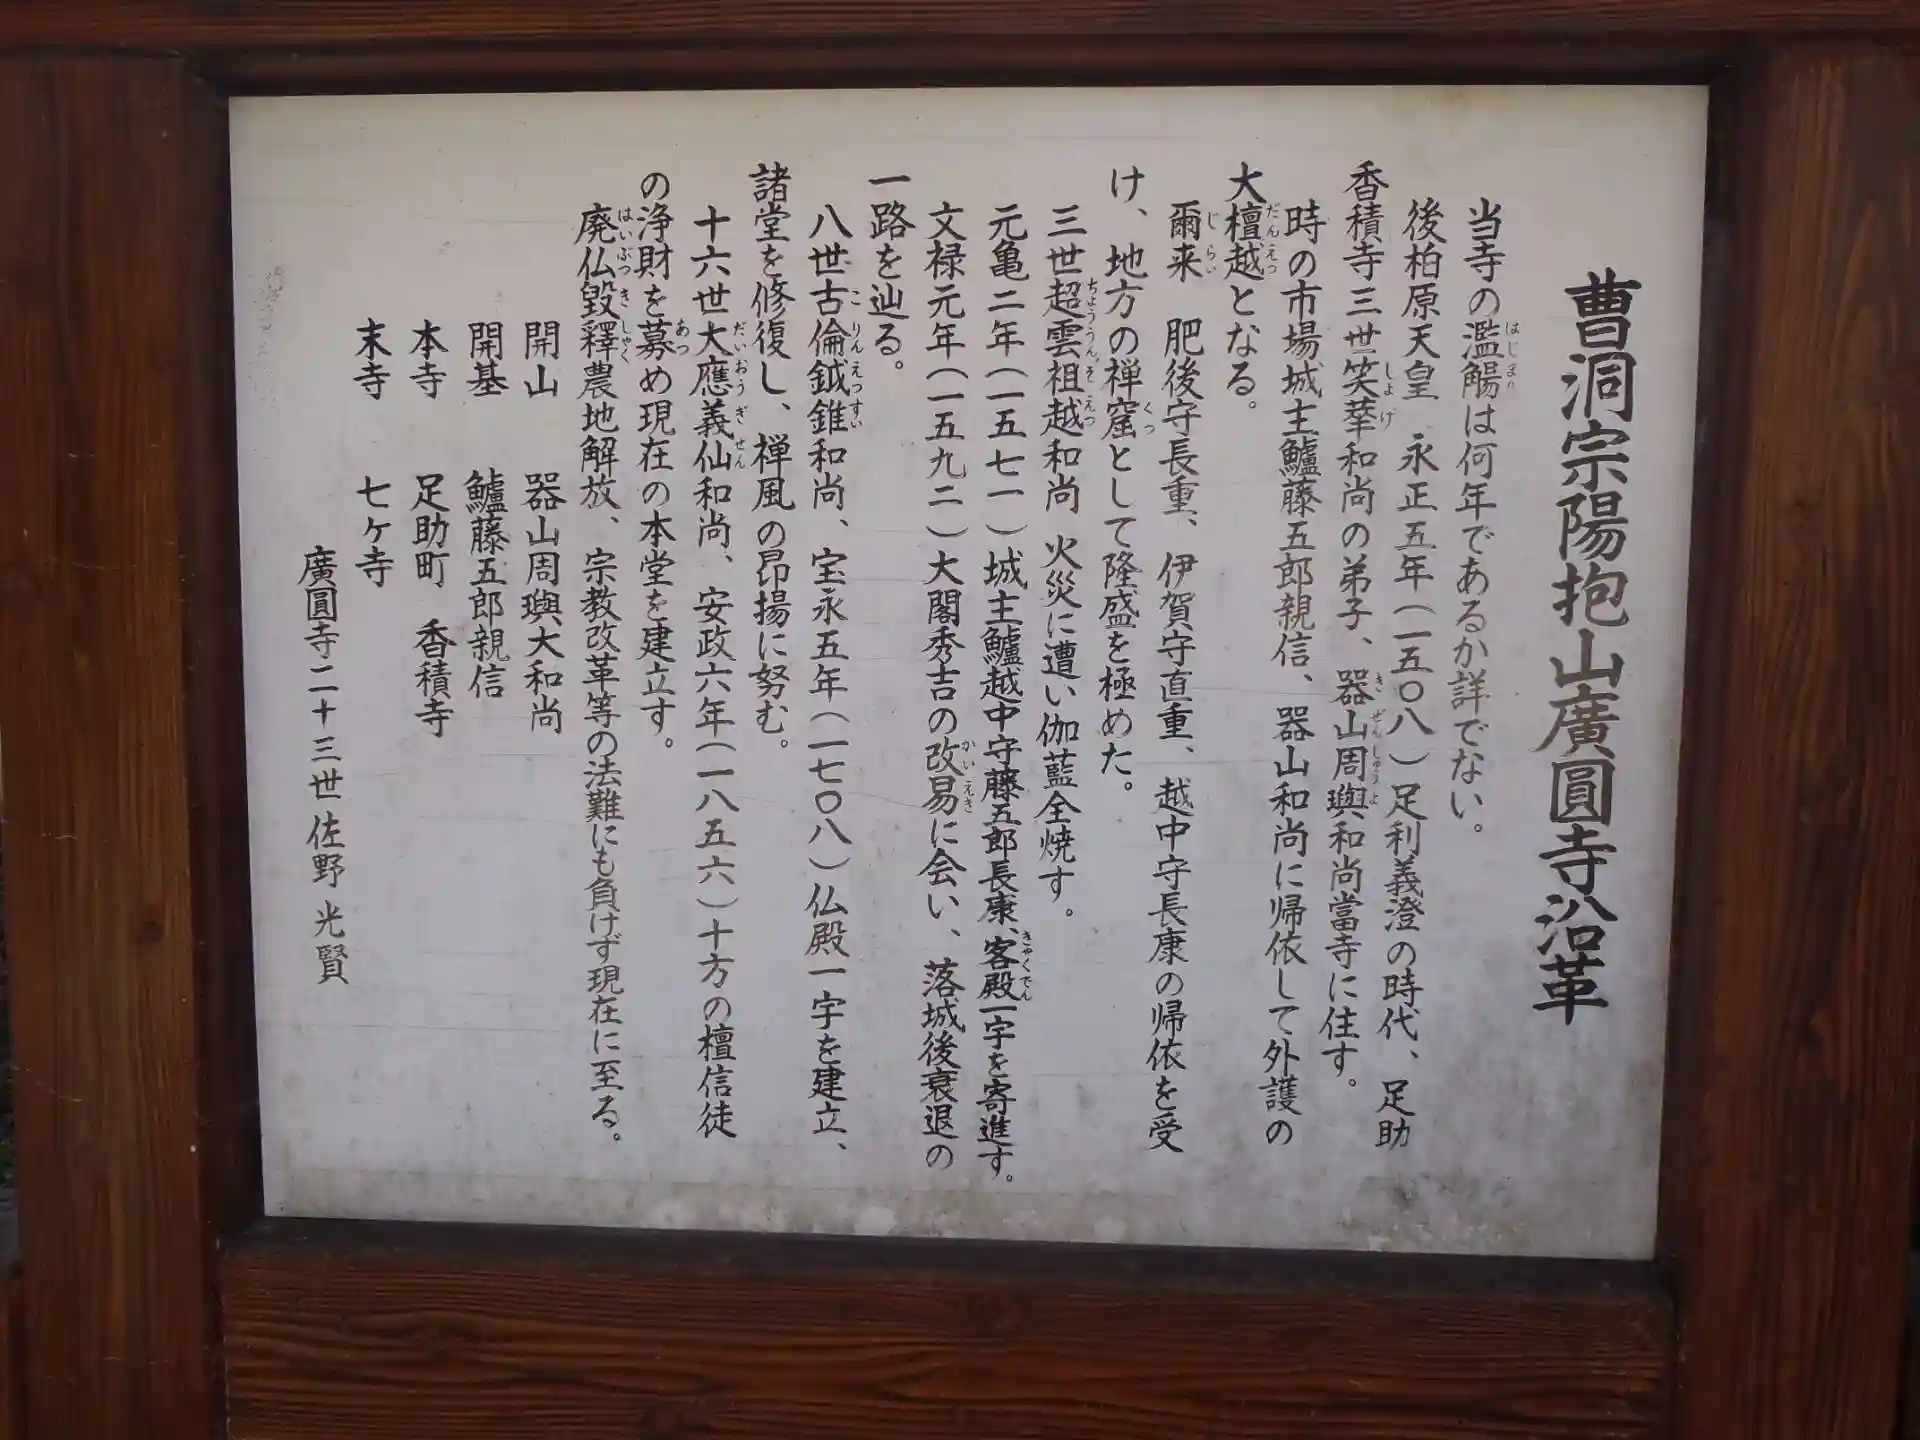 曹洞宗陽抱山廣圓寺沿革
当寺の濫觴は何年であるか詳でない。
後柏原天皇 永正五年（一五〇八）足利義澄の時代、足助
香積寺三世笑華和尚の弟子、器山周璵和尚當寺に住す。
時の市場城主鱸藤五郎親信、器山和尚に帰依して外護の
大檀越となる。
爾来 肥後守長重、伊賀守直重、越中守長康の帰依を受
け、地方の禅窟として隆盛を極めた。
三世超雲祖越和尚 火災に遭い伽藍全焼す。
元亀二年（一五七一）城主鱸越中守藤五郎長康、客殿一宇を寄進す。
文禄元年（一五九二）大閣秀吉の改易に会い、落城後衰退の
一路を辿る。
八世古倫鉞錐和尚、宝永五年（一七〇八）仏殿一宇を建立、
諸堂を修復し、禅風の昂揚に努む。
十六世大應義仙和尚、安政六年（一八五六）十方の檀信徒
の浄財を募め現在の本堂を建立す。
廃仏毀釋農地解放、宗教改革等の法難にも負けず現在に至る。
開山 器山周璵大和尚
開基 鱸藤五郎親信
本寺 足助町 香積寺
末寺 七ヶ寺
廣圓寺二十三世 佐野光賢